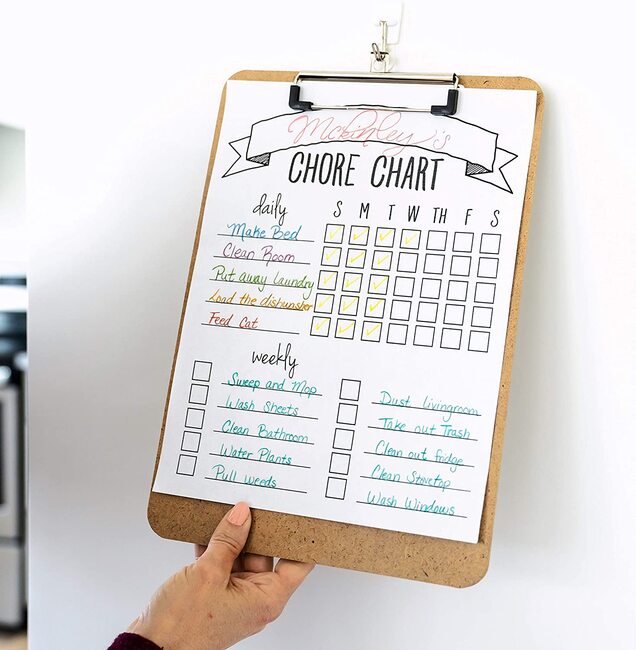 Mckinley's
CHORE CHART
daily
S M T W TH F S
Make Bed
Clean Room
Put away laundry
Load the dishwasher
Feed Cat
weekly
Sweep and Mop
Wash Sheets
Clean Bathroom
Water Plants
Pull weeds
Dust livingroom
Take out Trash
Clean out fridge
Clean Stovetop
Wash Windows